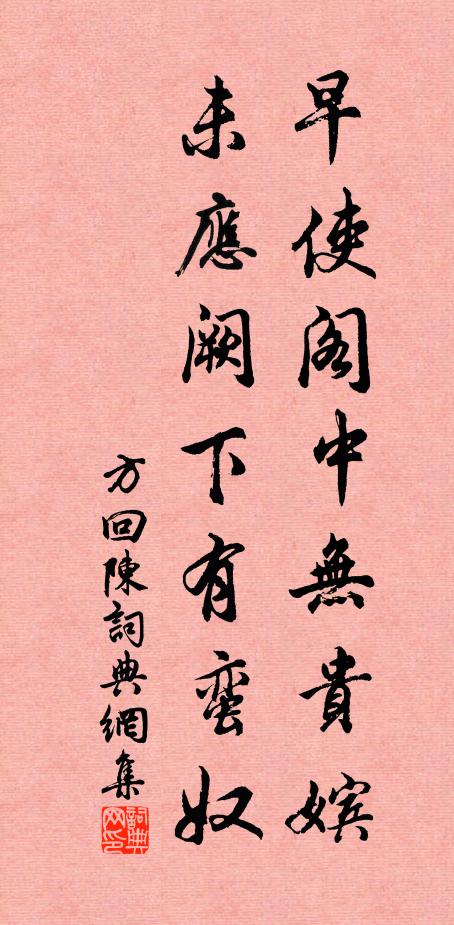 早使阁中無貴嬪
未應阙下有蛮奴
方回陳詞典網集
詞典网印